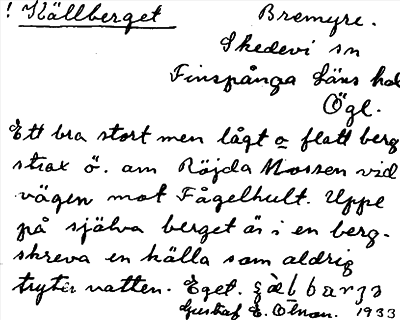 ! Källberget Bremyre.
Skedevi sn
Finspånga läns hd
Ögl.
Ett bra stort men lågt o flatt berg
strax ö. om Röjda Mossen vid
vägen mot Fågelhult. Uppe
på själva berget är i en berg-
skreva en källa som aldrig
tryter vatten. Eget.
Gustaf E. 1933